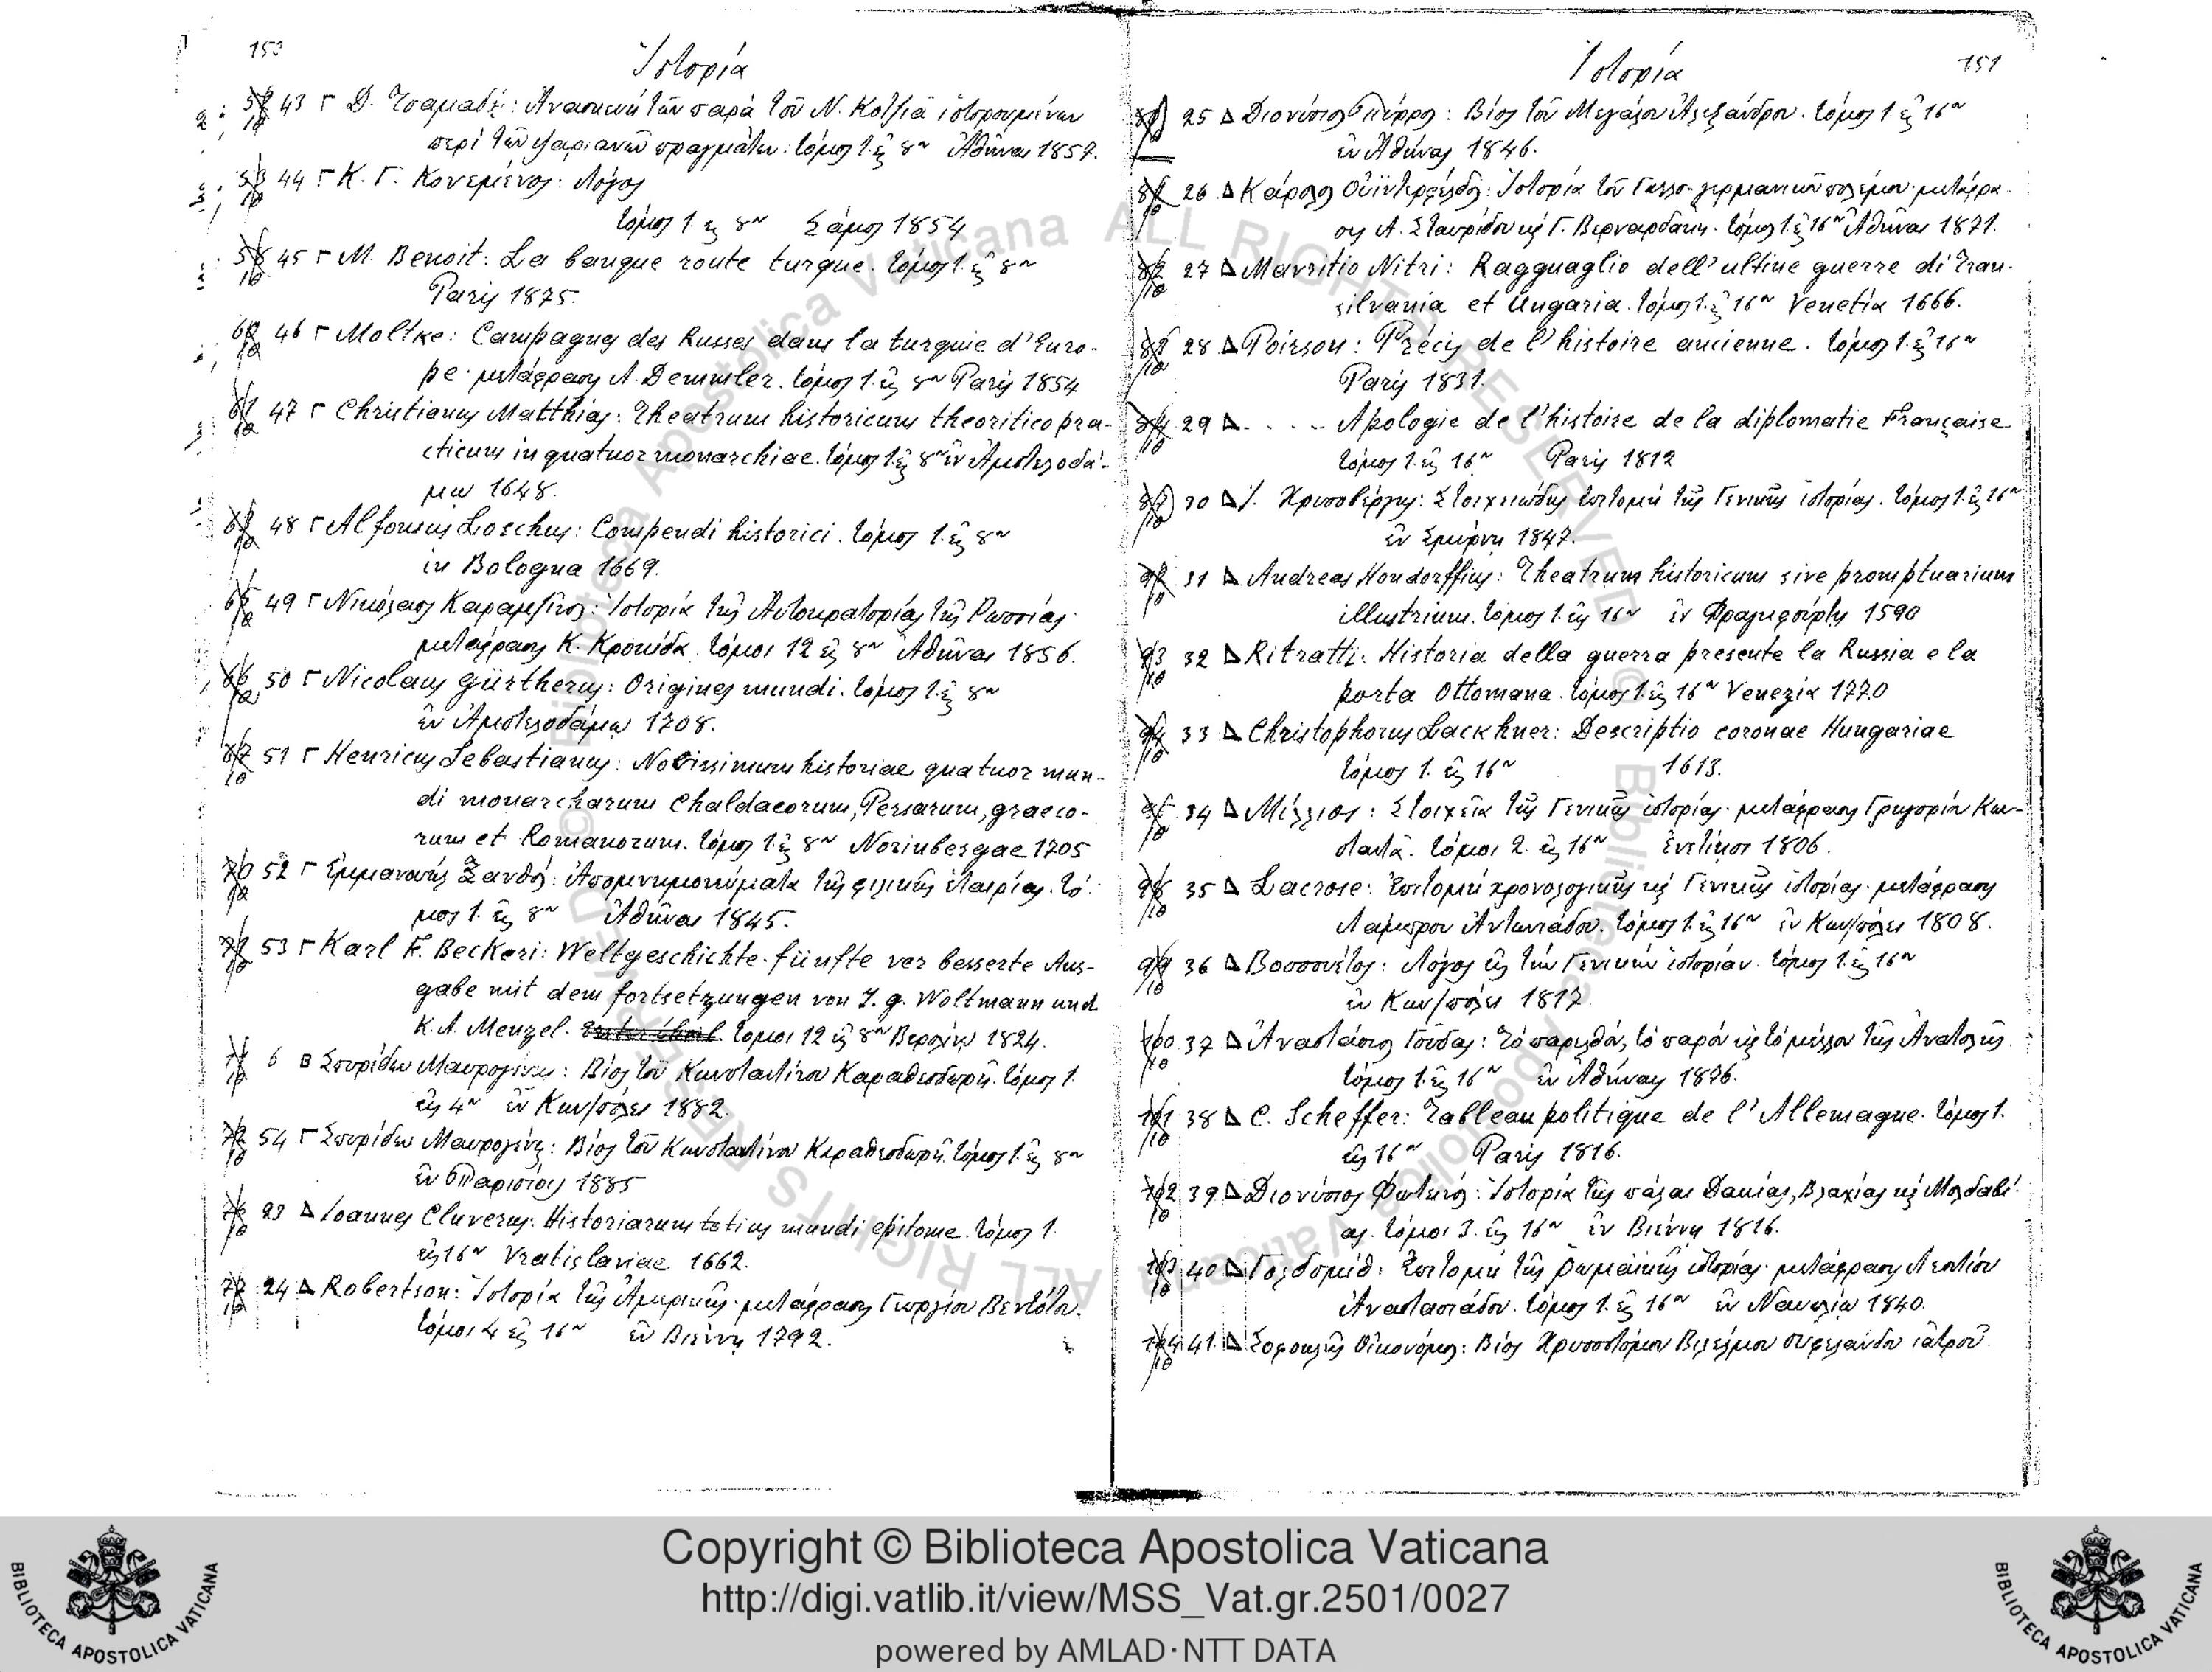 150
Ἱστορία
43 Γ Δ. Τσαμαδὸς: Ἀνασκευὴ τῶν παρὰ τοῦ Ν. Κοτζιᾶ ἱστορουμένων
περὶ τῶν ψαριανῶν πραγμάτων. τόμος 1. εἰς 8ον Ἀθῆναι 1857.
44 Γ Κ. Γ. Κονεμένος: Λόγος
τόμος 1. εἰς 8ον Σάμος 1854
45 Γ M. Benoit: La banque route turque. τόμος 1. εἰς 8ον
Paris 1875.
46 Γ Moltke: Campagnes des Russes dans la turquie d'Euro-
pe. μετάφρασις A. Demmler. τόμος 1. εἰς 8ον Paris 1854
47 Γ Christianus Matthias: Theatrum historicum theoritico pra-
cticum in quatuor monarchiae. τόμος 1. εἰς 8ον ἐν Ἀμστελοδά-
μῳ 1648.
48 Γ Alfonsus Loschus: Compendi historici. τόμος 1. εἰς 8ον
in Bologna 1669.
49 Γ Νικόλαος Καραμζῖνος: Ἱστορία τῆς Αὐτοκρατορίας τῆς Ρωσσίας.
μετάφρασις Κ. Κροκίδα. τόμοι 12 εἰς 8ον Ἀθῆναι 1856.
50 Γ Nicolaus gürtherus: Origines mundi. τόμος 1. εἰς 8ον
ἐν Ἀμστελοδάμῳ 1708.
51 Γ Henricus Sebastianus: Novissimum historiae quatuor mun-
di monarcharum Chaldaeorum, Persarum, graeco-
rum et Romanorum. τόμος 1. εἰς 8ον Norinbergae 1705
52 Γ Ἐμμανουὴλ Ξανθός: Ἀπομνημονεύματα τῆς φιλικῆς ἑταιρίας. τό-
μος 1. εἰς 8ον Ἀθῆναι 1845.
53 Γ Karl F. Beckeri: Weltgeschichte. fünfte ver besserte Aus-
gabe mit dem fortsetzungen von J. g. Woltmann und
K. A. Menzel. τόμοι 12 εἰς 8ον Βερολίνῳ 1824.
6 Σπυρίδων Μαυρογένης: Βίος τοῦ Κωνσταντίνου Καραθεοδωρῆ. τόμος 1.
εἰς 4ον ἐν Κων/πόλει 1882.
54 Γ Σπυρίδων Μαυρογένης: Βίος τοῦ Κωνσταντίνου Καραθεοδωρῆ. τόμος 1. εἰς 8ον
ἐν Παρισίοις 1885
23 Δ Ioannes Cluverus. Historiarum totius mundi epitome. τόμος 1.
εἰς 16ον Vratislaviae 1662.
24 Δ Robertson: Ἱστορία τῆς Ἀμερικῆς. μετάφρασις Γεωργίου Βεντότου.
τόμοι 4 εἰς 16ον ἐν Βιέννῃ 1792.
Ἱστορία
151
25 Δ Διονύσιος Πύρρος: Βίος τοῦ Μεγάλου Ἀλεξάνδρου. τόμος 1. εἰς 16ον
ἐν Ἀθήναις 1846.
26 Δ Κάρολος Οὐϊντερφέλδος: Ἱστορία τοῦ Γαλλο-γερμανικοῦ πολέμου. μετάφρα-
σις Α. Σταυρίδου καὶ Γ. Βερναρδάκη. τόμος 1. εἰς 16ον Ἀθῆναι 1871.
27 Δ Mavritio Nitri: Ragguaglio dell' ultine guerre di Tran-
silvania et Ungaria. τόμος 1. εἰς 16ον Venetia 1666.
28 Δ Poirson: Précis de l'histoire ancienne. τόμος 1. εἰς 16ον
Paris 1831.
29 Δ. . . . . Apologie de l'histoire de la diplomatie Française
τόμος 1. εἰς 16ον Paris 1812
30 Δ Ἰ. Χρυσοβέργης: Στοιχειώδης ἐπιτομὴ τῆς Γενικῆς ἱστορίας. τόμος 1. εἰς 16ον
ἐν Σμύρνῃ 1847.
31 Δ Andreas Hondorffius: Theatrum historicum sive promptuarium
illustrium. τόμος 1. εἰς 16ον ἐν Φραγκφούρτῃ 1590
32 Δ Ritratti. Historia della guerra presente la Russia e la
porta Ottomana. τόμος 1. εἰς 16ον Venezia 1770
33 Δ Christophorus Lackhner: Descriptio coronae Hungariae
τόμος 1. εἰς 16ον 1613.
34 Δ Μίλλιος: Στοιχεῖα τῆς Γενικῆς ἱστορίας. μετάφρασις Γρηγορίου Κων-
σταντᾶ. τόμοι 2. εἰς 16ον Ἐνετίῃσι 1806.
35 Δ Lacrose: Ἐπιτομὴ χρονολογικῆς καὶ Γενικῆς ἱστορίας. μετάφρασις
Λάμπρου Ἀντωνιάδου. τόμος 1. εἰς 16ον ἐν Κων/πόλει 1808.
36 Δ Βοσσουέτος: Λόγος εἰς τὴν Γενικὴν ἱστορίαν. τόμος 1. εἰς 16ον
ἐν Κων/πόλει 1817
37 Δ Ἀναστάσιος Γούδας: Τὸ παρελθόν, τὸ παρόν καὶ τὸ μέλλον τῆς Ἀνατολῆς.
τόμος 1. εἰς 16ον ἐν Ἀθήναις 1876.
38 Δ C. Scheffer: Tableau politique de l'Allemagne. τόμος 1.
εἰς 16ον Paris 1816.
39 Δ Διονύσιος Φωτεινός: Ἱστορία τῆς πάλαι Δακίας, Βλαχίας καὶ Μολδαβί-
ας. τόμοι 3. εἰς 16ον ἐν Βιέννῃ 1816.
40 Δ Γολδσμιθ: Ἐπιτομὴ τῆς ῥωμαϊκῆς ἱστορίας. μετάφρασις Λεοντίου
Ἀναστασιάδου. τόμος 1. εἰς 16ον ἐν Ναυπλίῳ 1840.
41. Δ Σοφοκλῆς Οἰκονόμος: Βίος Χρυσοστόμου Βιλέλμου Οὐφελάνδου ἰατροῦ.
Copyright © Biblioteca Apostolica Vaticana
http://digi.vatlib.it/view/MSS_Vat.gr.2501/0027
powered by AMLAD·NTT DATA
BIBLIOTECA APOSTOLICA VATICANA
BIBLIOTECA APOSTOLICA VATICANA